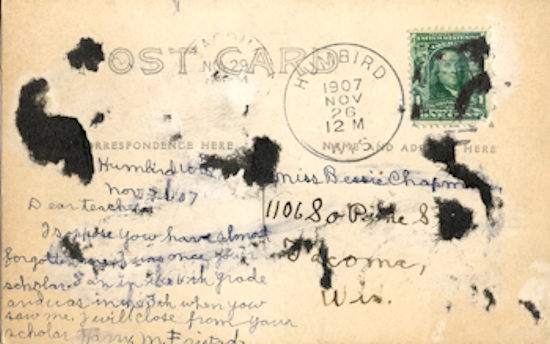 POST CARD
NOV 29
HUMBIRD
1907
NOV
26
12 M
WIS.
ONE CENT
CORRESPONDENCE HERE
NAME AND ADDRESS HERE
Humbird Wis
Nov 07
Dear teacher
I you have almost
forgotten I was once your
scholar I am in the 6th grade
and was in when you
saw me. I will close from your
scholar M.
Miss Bessie Chapman
1106 So Pine S
Tacoma,
Wis.